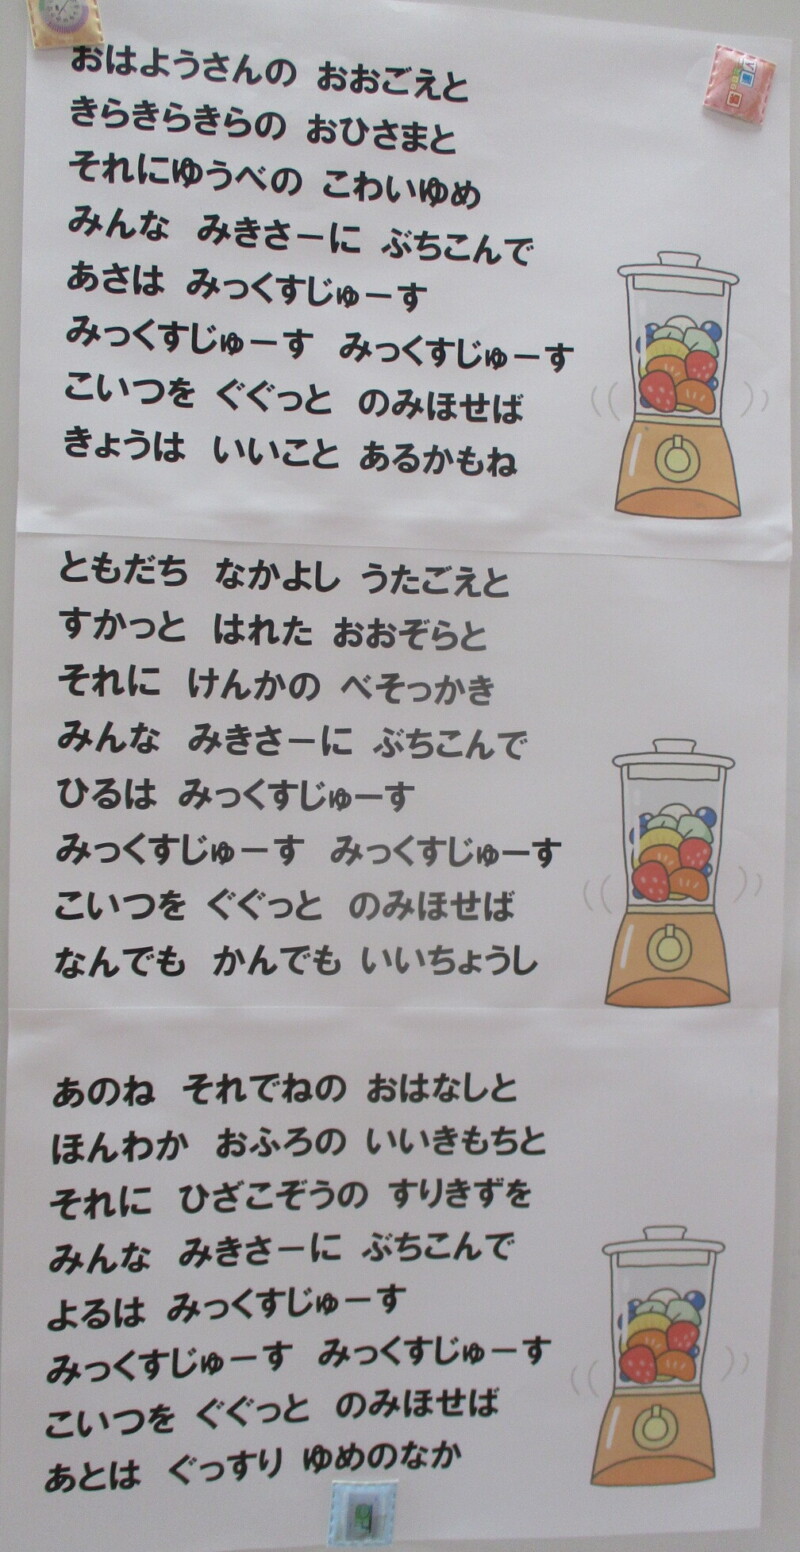 おはようさんの おおごえと
きらきらきらの おひさまと
それにゆうべの こわいゆめ
みんな みきさーに ぶちこんで
あさは みっくすじゅーす
みっくすじゅーす みっくすじゅーす
こいつを ぐぐっと のみほせば
きょうは いいこと あるかもね
ともだち なかよし うたごえと
すかっと はれた おおぞらと
それに けんかの べそっかき
みんな みきさーに ぶちこんで
ひるは みっくすじゅーす
みっくすじゅーす みっくすじゅーす
こいつを ぐぐっと のみほせば
なんでも かんでも いいちょうし
あのね それでねの おはなしと
ほんわか おふろの いいきもちと
それに ひざこぞうの すりきずを
みんな みきさーに ぶちこんで
よるは みっくすじゅーす
みっくすじゅーす みっくすじゅーす
こいつを ぐぐっと のみほせば
あとは ぐっすり ゆめのなか